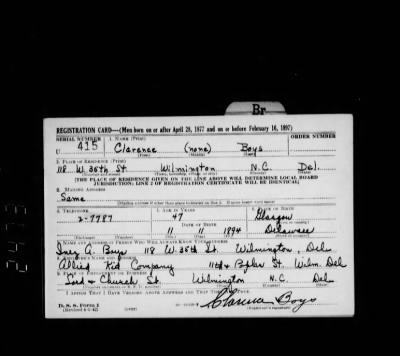 Br
REGISTRATION CARD—(Men born on or after April 28, 1877 and on or before February 16, 1897)
SERIAL NUMBER 1. NAME (Print) ORDER NUMBER
U 415 Clarence (none) Boys
(First) (Middle) (Last)
2. PLACE OF RESIDENCE (Print)
118 W. 35th St Wilmington N.C. Del.
[THE PLACE OF RESIDENCE GIVEN ON THE LINE ABOVE WILL DETERMINE LOCAL BOARD
JURISDICTION; LINE 2 OF REGISTRATION CERTIFICATE WILL BE IDENTICAL]
3. MAILING ADDRESS
Same
4. TELEPHONE 5. AGE IN YEARS 6. PLACE OF BIRTH
2-7787 47 Glasgow
DATE OF BIRTH
11 11 1894 Delaware
7. NAME AND ADDRESS OF PERSON WHO WILL ALWAYS KNOW YOUR ADDRESS
A. Boys 118 W. 35th St. Wilmington, Del
8. EMPLOYER'S NAME AND ADDRESS
Allied Kid Company 11th & St. Wilm. Del
9. PLACE OF EMPLOYMENT OR BUSINESS
& Church St. Wilmington N.C. Del
I AFFIRM THAT I HAVE VERIFIED ABOVE ANSWERS AND THAT THEY ARE TRUE.
D. S. S. Form 1
Clarence Boys